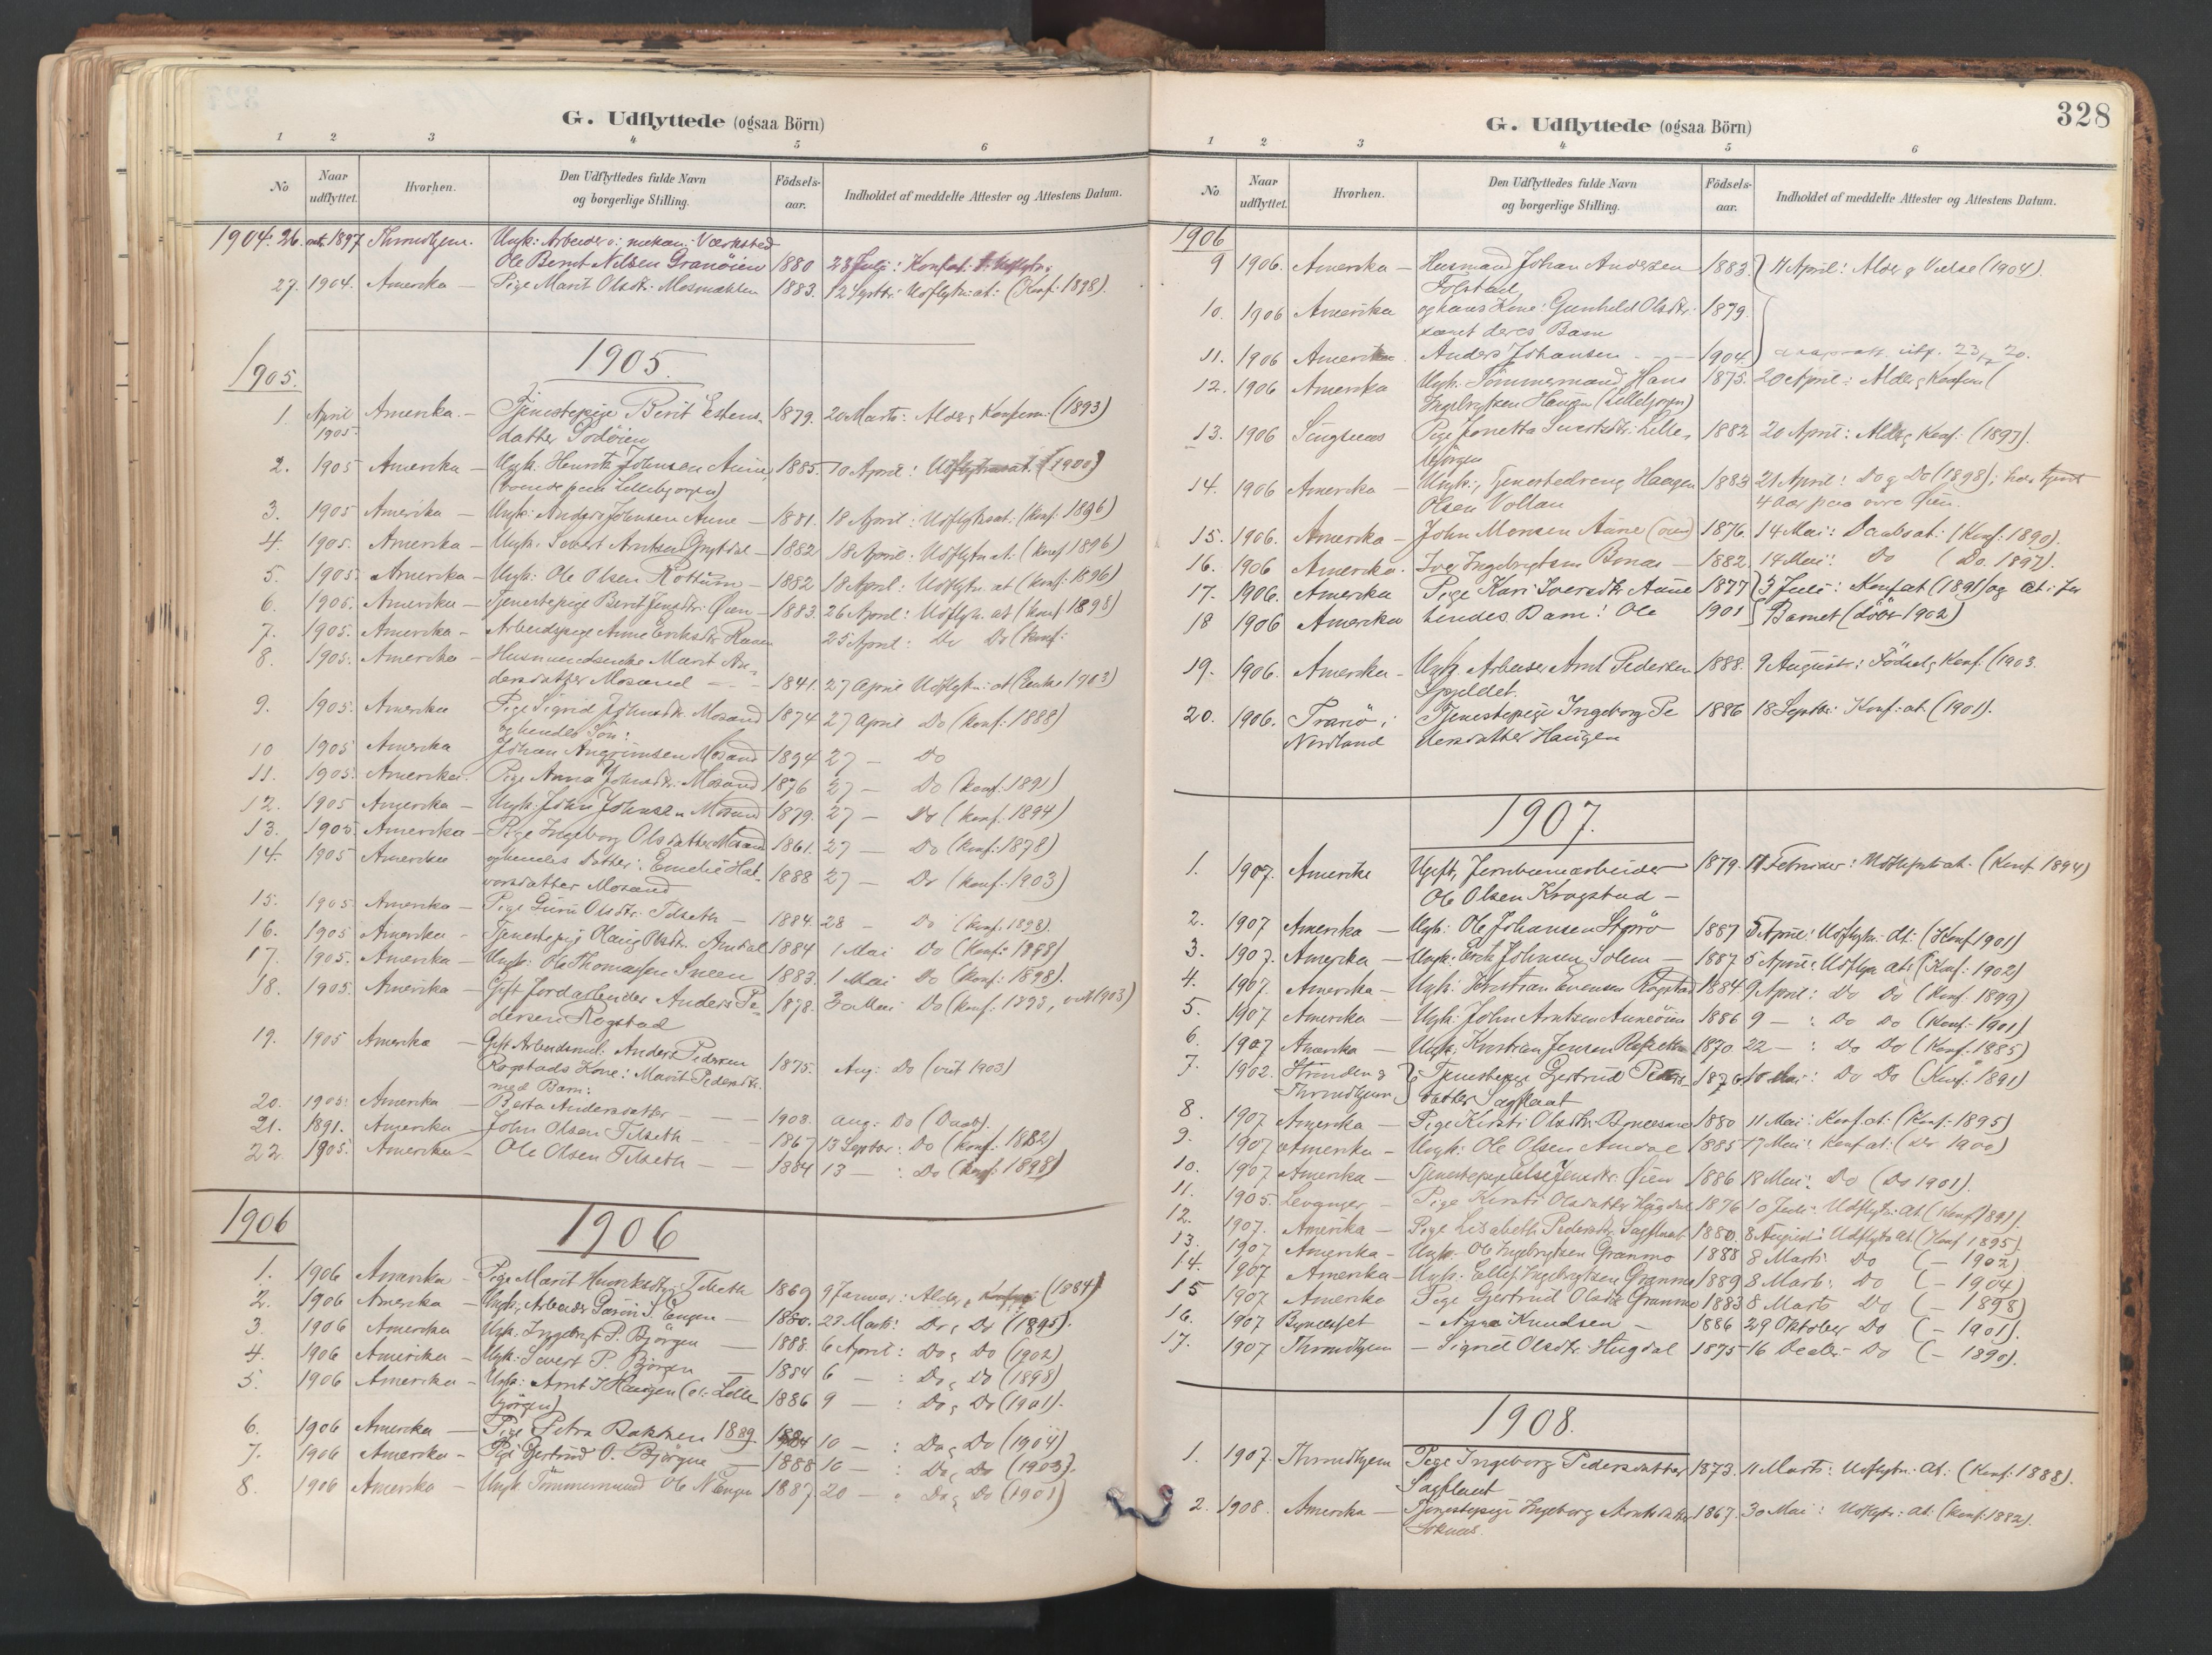 G. Udflyttede (ogsaa Börn)
1 2 3 4 5 6
No Naar udflyttet. Hvorhen. Den Udflyttedes fulde Navn og borgerlige Stilling. Födsels-aar. Indholdet af meddelte Attester og Attestens Datum.
1904. 26. 1897 Throndhjem. Ungk: Arbeider v: mekan: Værksted
Ole Bernt Nilsen Granöien 1880 28 Juli: Konf.at:
27. 1904. Amerika — Pige Marit Olsdtr: Mosmælen 1883. 12 Septbr: Udflytn: at: (Konf: 1898).
1905. 1905.
1. April 1905. Amerika — Tjenestepige Berit Estens- 1879. 20 Marts: Alder, Konfirm: (1893)
datter Sodöien
2. 1905 Amerika — Ungk: Henrik Johnsen Aune, 1885. 10 April: Udflytnsat. (1900)
(boende paa Lillebjørgen)
3. 1905 Amerika — Ungk: Anders Johnsen Aune — 1881. 18 April: Udflytnsat: (Konf: 1896)
4. 1905. Amerika — Ungk: Sivert Arntsen Grytdal — 1882 18 April: Udflytn at: (Konf 1896)
5. 1905. Amerika — Ungk: Ole Olsen Rottum — 1882 18 April: Udflytn. at (Konf: 1896)
6. 1905. Amerika — Tjenestepige Berit Jensdtr: Øien — 1883. 26 April: Udflytn. at (Konf 1898)
7. 1905. Amerika — Arbeidspige Anne Eriksdtr 25 April: Do Do (Konf:
8. 1905. Amerika — Husmandsenke Marit An-
dersdatter Mosand — 1841. 27 April Udflytn: at (Enke 1903)
9. 1905. Amerika Pige Sigrid Johnsdtr. Mosand 1874 27 April Do (Konf: 1888)
og hendes Sön:
10 1905 Amerika Johan Angrimsen Mosand 1894 27 — Do
11. 1905. Amerika. Pige Anna Johnsdtr: Mosand 1876 27 — Do (Konf: 1891)
12. 1905 Amerika — Ungk: John Johnsen Mosand 1879. 27 — Do (Konf. 1894)
13. 1905. Amerika — Pige Ingeborg Olsdatter Mosand 1861. 27 — Do (Konf: 1878)
14. 1905 Amerika og hendes Datter: Emelie Hal- 1888 27 — Do (Konf: 1903)
vorsdatter Mosand
15. 1905 Amerika — Pige Guru Olsdtr: Tilseth — 1884. 28 — Do (Konf: 1898).
16. 1905 Amerika — Tjenestepige Olaug Olsdtr. Amdal 1884 1 Mai Do (Konf: 1898)
17. 1905. Amerika — Ungk: Ole Thomassen Sneen 1883. 1 Mai Do (Konf: 1898).
18. 1905. Amerika — Gift Jordarbeider Anders Pe- 1878. 30 Mai Do (Konf: 1893, viet 1903)
dersen Rogstad
19. 1905 Amerika — Gift Arbeidsmd: Anders Pedersen 1875. Aug: Do (viet 1903)
Rogstads Kone: Marit Pedersdtr.
med Barn:
20. 1905: Amerika — Berta Andersdatter — 1903. Aug: Do (Daab).
21. 1891. Amerika — John Olsen Tilseth — 1867 13 Septbr: Do (Konf. 1882)
22. 1905. Amerika — Ole Olsen Tilseth — 1884 13 — : Do (Konf: 1898)
1906 1906
1. 1906 Amerika — Pige Marit Henriksdtr: Tilseth 1869 9 Januar: Alder, Konf: (1884)
2. 1906 Amerika — Ungk, Arbeider S. Engen — 1880. 29 Marts: Do, Do (1895).
3. 1906 Amerika Ungk. Ingebrigt P. Björgen — 1888. 6 April: Do, Do (1902)
4. 1906 Amerika — Ungk: Sivert P. Björgen — 1884 6 — : Do, Do (1898)
5. 1906 Amerika — Ungk: Arnt J Haugen (v. Lille- 1886 9 — : Do, Do (1901).
björgen)
6. 1906 Amerika — Pige Petra Bakken 1889. 1884 10 — : Do, Do (1904)
7. 1906 Amerika — Pige Gjertrud O. Björgen — 1888 10 — : Do, Do (1903).
8. 1906 Amerika — Ungk. Tömmermand Ole N Engen 1887. 20 — : Do, Do (1901)
G. Udflyttede (ogsaa Börn) 328
1 2 3 4 5 6
No Naar udflyttet. Hvorhen. Den Udflyttedes fulde Navn og borgerlige Stilling. Födsels-aar. Indholdet af meddelte Attester og Attestens Datum.
1906
9 1906. Amerika — Husmand Johan Andersen 1883. 11 April: Alder, Vielse (1904).
Folstad
10. 1906 Amerika og hans Kone: Gunhild Olsdtr. 1879.
samt deres Barn
11. 1906 Amerika. Anders Johansen — 1904. utf. 23/2 20.
12. 1906 Amerika Ungk. Tömmermand Hans 1875. 20 April: Alder, Konfirm (
Ingebrigtsen Haugen (Lillebjørgen)
13. 1906 Singsaas Pige Jonetta Sivertsdtr: Lille- 1882 20 April: Alder, Konf: (1897).
björgen
14. 1906 Amerika — Ungk:, Tjenestedreng Haagen 1883 21 April: Do, Do (1898); har tjent
Olsen Vollan 4 aar paa övre Øien.
15. 1906. Amerika — John Monsen Aune 1876. 14 Mai: Daabsat: (Konf: 1890).
16. 1906 Amerika. Iver Ingebrigtsen Bonas — 1882. 14 Mai: Do (Do. 1897).
17. 1906. Amerika Pige Kari Iversdtr Aune 1877 3 Juli: Konfat (1891) og at: for
18 1906 Amerika hendes Barn: Ole 1901 Barnet (döbt 1902)
19. 1906. Amerika — Ungk. Arbeider Arnt Pedersen 1888. 9 August: Födsel, Konf: (1903.
Spjeldet.
20. 1906. Tranö i Tjenestepige Ingeborg Pe 1886 18 Septbr: Konf: at: (1901).
Nordland dersdatter Haugen
1907.
1. 1907. Amerika Ugift, Jernbanearbeider 1879. 11 Februar: Udflytnsat: (Konf. 1894)
Ole Olsen Krogstad —
2. 1907 Amerika — Ungk: Ole Johansen 1887 5 April: Udflytn: at: (Konf 1901)
3. 1907. Amerika — Ungk: Erik Johnsen Solem — 1887 5 April: Udflytn at: (Konf: 1902)
4. 1907. Amerika — Ungk: Kristian Evensen Rogstad 1884 9 April: Do Do (Konf. 1899)
5. 1907 Amerika — Ungk: John Arntsen Auneöien 1886 9 — : Do Do (Konf: 1901)
6. 1907 Amerika — Ungk, Kristian Jensen 1870. 22 — : Do Do (Konf: 1885)
7. 1902. Strinden og Tjenestepige Gjertrud Peders- 1876 10 Mai: Do Do (Konf: 1891)
Throndhjem datter Sagflaat
8. 1907 Amerika — Pige Kirsti Olsdtr. 1880 11 Mai: Konf. at: (Konf: 1895)
9. 1907 Amerika — Ungk: Ole Olsen Amdal 1885 17 Mai: Konf at: (Do 1900)
10. 1907 Amerika — Tjenestepige Else Jensdtr: Øien 1886 18 Mai: Do (Do 1901).
11. 1905. Levanger — Pige Kirsti Olsdatter Hugdal 1876 10 Juli: Udflytn: at (Konf 1891).
12. 1907. Amerika — Pige Lisabeth Pedersdtr Sagflaat 1880. 8 August: Udflytn at: (Konf 1895).
13. 1907 Amerika — Ungk. Ole Ingebrigtsen Granmo 1888 8 Marts Do (— 1902)
14. 1907 Amerika — Ungk: Ellef Ingebrigtsen Granmo 1889 8 Marts: Do (— 1904)
15 1907 Amerika Pige Gjertrud Olsdtr Granmo 1883 8 Marts Do (— 1898)
16. 1907 Bynesset — Anna Knudsen — 1886 29 Oktober Do (— 1901).
17. 1907 Throndhjem — Sigrid Olsdtr. Hugdal 1875 16 Decbr: Do (— 1890).
1908.
1. 1907. Throndhjem Pige Ingeborg Pedersdatter 1873. 11 Marts: Udflytn: at: (Konf: 1888).
Sagflaat
2. 1908. Amerika — Tjenestepige Ingeborg Arntsdatter 1867. 30 Mai: Udflytn: at: (Konf: 1882).
Soknes.